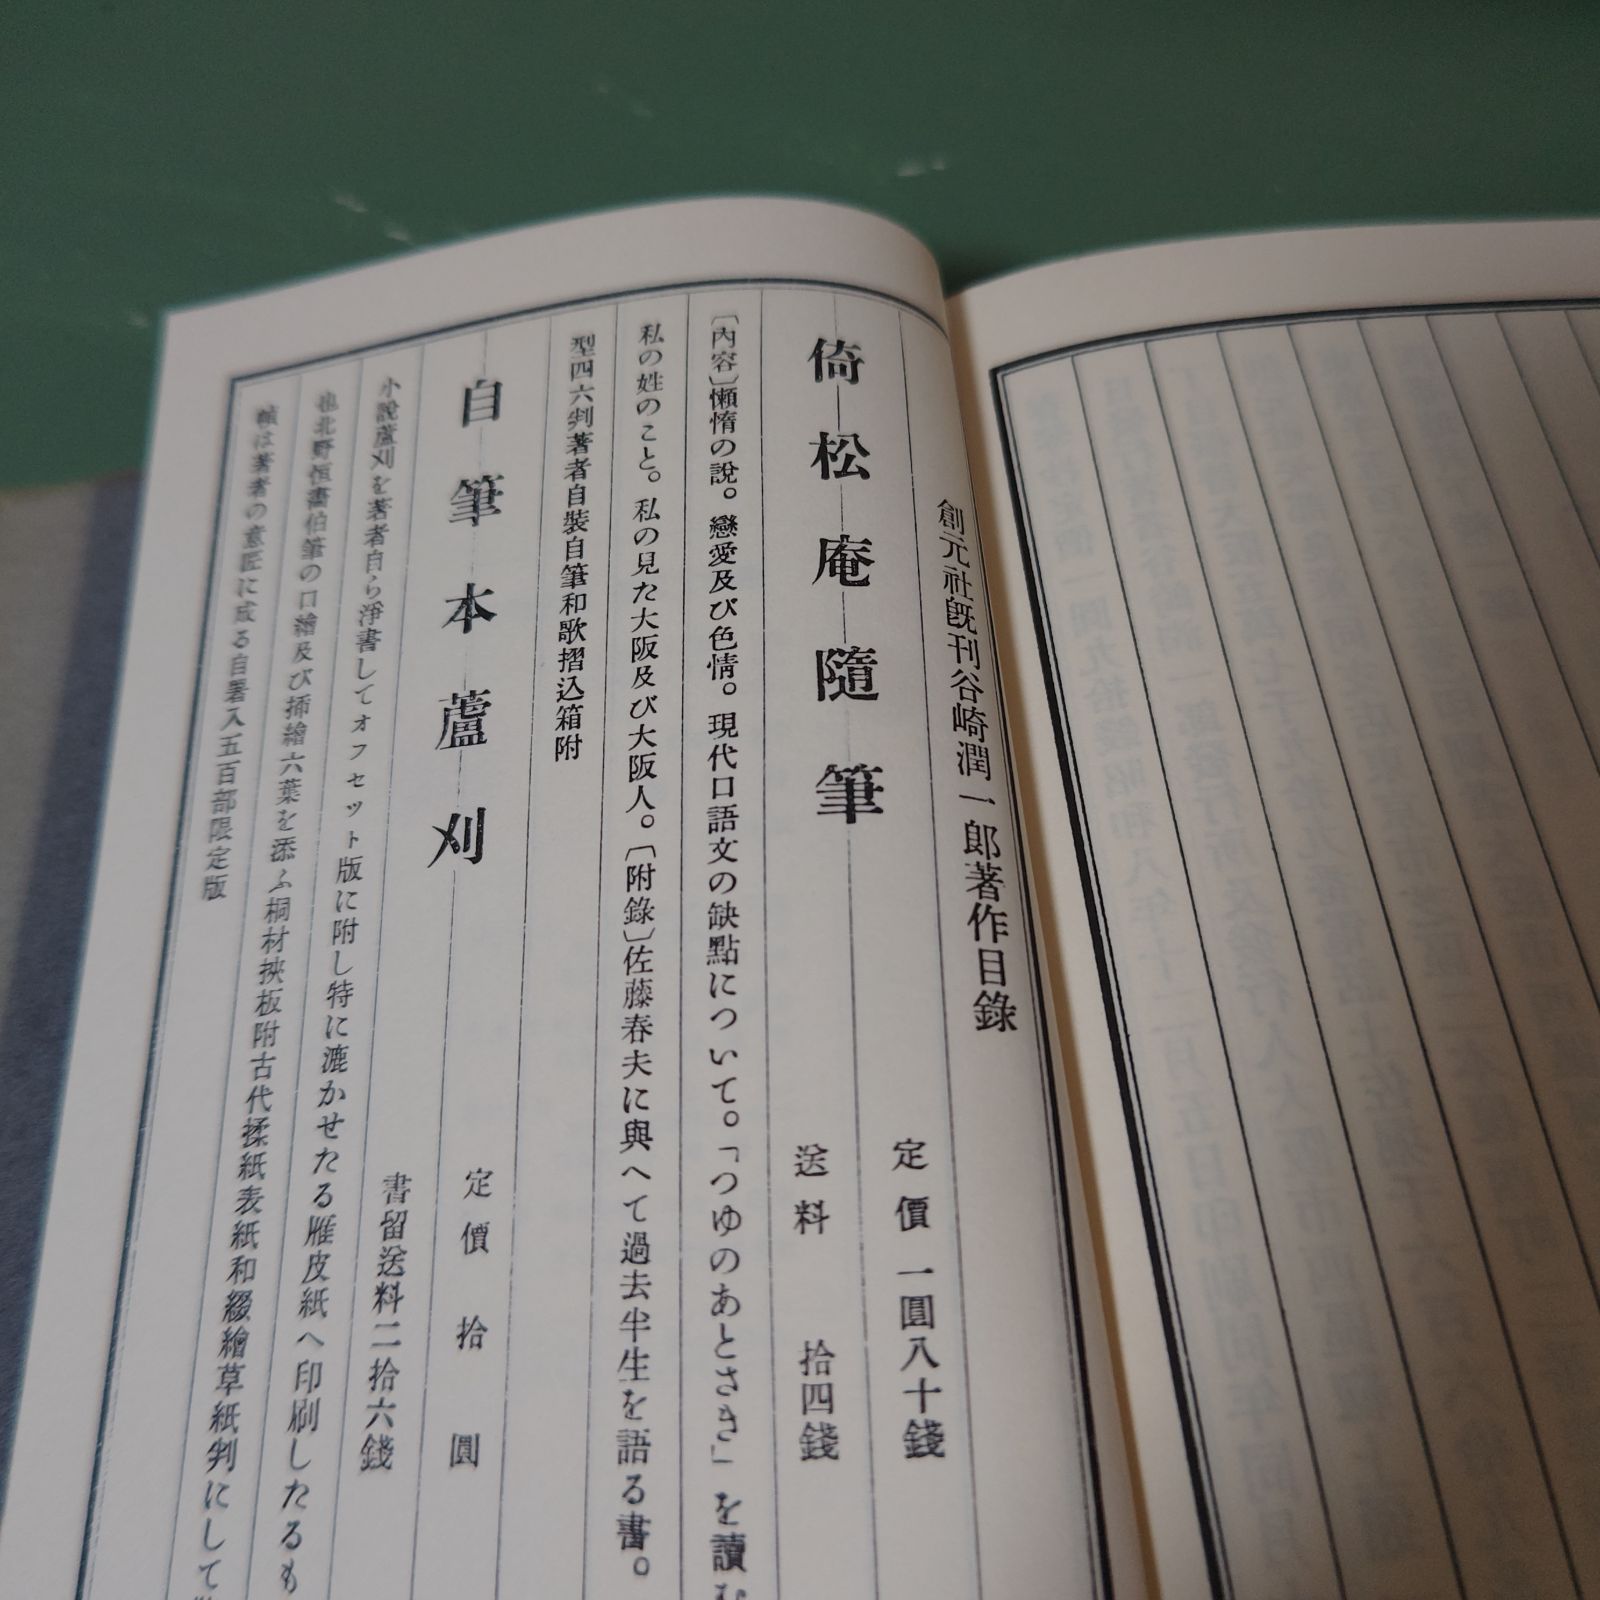 創元社既刊谷崎潤一郎著作目錄
倚松庵隨筆
定價 一圓八十錢
送料 拾四錢
〔內容〕懶惰の說。戀愛及び色情。現代口語文の缺點について。「つゆのあとさき」を讀む
私の姓のこと。私の見た大阪及び大阪人。〔附錄〕佐藤春夫に與へて過去半生を語る書。
型四六判著者自裝自筆和歌摺込箱附
自筆本蘆刈
定價 拾圓
書留送料二拾六錢
小說蘆刈を著者自ら淨書してオフセット版に附し特に漉かせたる雁皮紙へ印刷したるも
也北野恒畵伯筆の口繪及び揷繪六葉を添ふ桐材挾板附古代揉紙表紙和綴繪草紙判にして
幀は著者の意匠に成る自署入五百部限定版